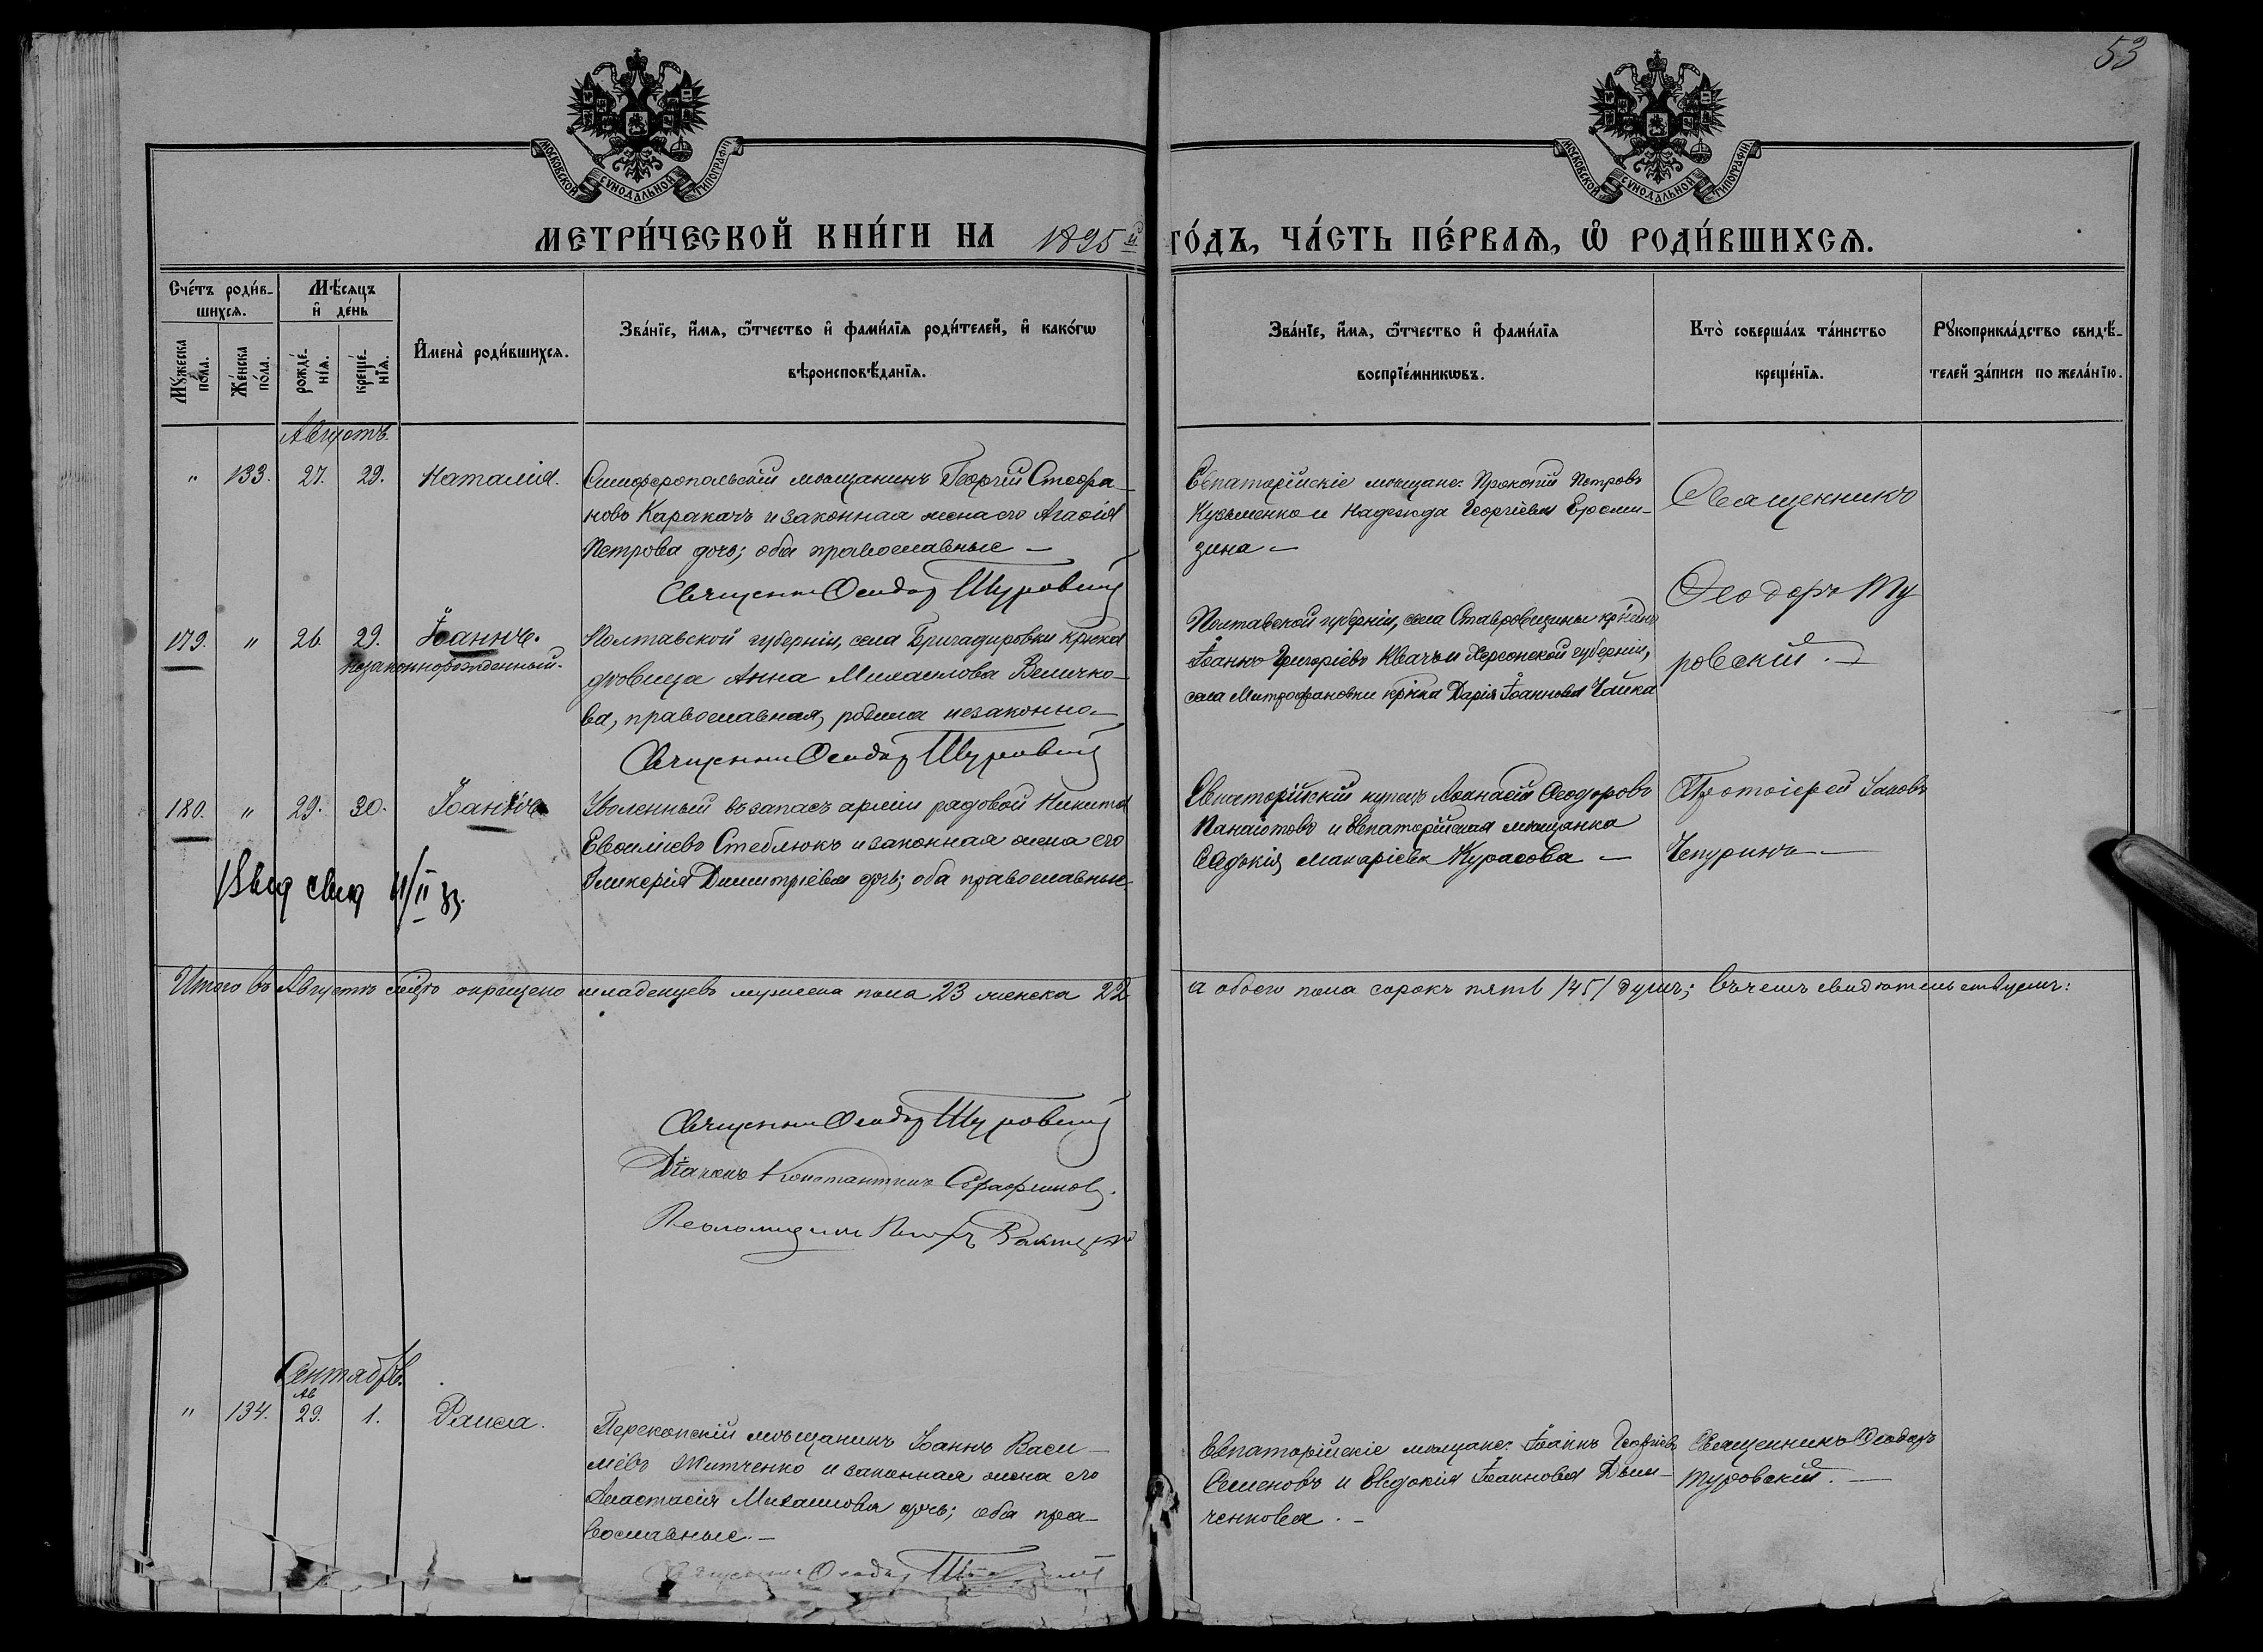 53
МОСКОВСКОЙ СѴНОДАЛЬНОЙ ТИПОГРАФІИ
МОСКОВСКОЙ СѴНОДАЛЬНОЙ ТИПОГРАФІИ
МЕТРИ́ЧЕСКОЙ КНИ́ГИ НА 1895й ГО́ДЪ, ЧА́СТЬ ПЕ́РВАѦ, Ѡ҆ РОДИ́ВШИХСѦ.
Сче́тъ роди́в-
шихсѧ.
Мѣ́сѧцъ
и҆ де́нь
Мꙋ́жеска
по́ла.
Же́нска
по́ла.
рожде́-
нїѧ.
креще́-
нїѧ.
И҆мена̀ роди́вшихсѧ.
Зва́нїе, и҆́мѧ, ѻ҆́тчество и҆ фами́лїѧ роди́телей, и҆ како́гѡ
вѣроисповѣ́данїѧ.
Зва́нїе, и҆́мѧ, ѻ҆́тчество и҆ фами́лїѧ
воспрїе́мникѡвъ.
Кто̀ соверша́лъ та́инство
креще́нїѧ.
Рꙋкоприкла́дство свидѣ́-
телей за́писи по жела́нїю.
Августъ.
" 133. 27. 29. Наталія.
Симферопольскій мѣщанинъ Георгій Стефа-
новъ Каракачъ и законная жена его Агафія
Петрова дочь; оба православные —
Священник Феодор Туровский
Евпаторійскіе мѣщане: Прокопій Петровъ
Кузьменко и Надежда Георгіева
зина —
Священникъ
Феодоръ Ту
ровскій. —
179. " 26. 29. Іоаннъ.
незаконнорожденный.
Полтавской губерніи, села Бригадировки кр-ка
вдовица Анна Михаилова Величко-
ва, православная, родила незаконно. —
Священник Феодор Туровский
Полтавской губерніи, села Ставровщины кр-нинъ
Іоаннъ Григоріевъ Квачъ и Херсонской губерніи,
села Митрофановки кр-нка Дарія Іоаннова Чайка
180. " 29. 30. Іоаннъ
Уволенный въ запасъ арміи рядовой Никита
Стеблюкъ и законная жена его
Гликерія Димитріева дочь; оба православные.
Евпаторійскій купецъ Афанасій Феодоровъ
Панаіотовъ и Евпаторійская мѣщанка
Евдокія Макаріева Курасова —
Протоіерей Іаковъ
Чепуринъ —
Итого въ Августѣ м-цѣ окрещено младенцевъ мужеска пола 23 женска 22
а обоего пола сорокъ пять /45/ душъ; въ чемъ свидѣтельствуемъ:
Священник Феодор Туровский
Діаконъ Константинъ Серафимов.
Псаломщикъ Петръ
Сентябрь.
" 134. Ав 29. 1. Раиса.
Перекопскій мѣщанинъ Іоаннъ Васи-
ліевъ Житченко и законная жена его
Анастасія Михаилова дочь; оба пра-
вославные. —
Священник Феодор
Евпаторійскіе мѣщане: Іоаннъ Георгіевъ
Семеновъ и Евдокія Іоаннова Дьяч-
ченкова. —
Священникъ Феодоръ
Туровскій. —